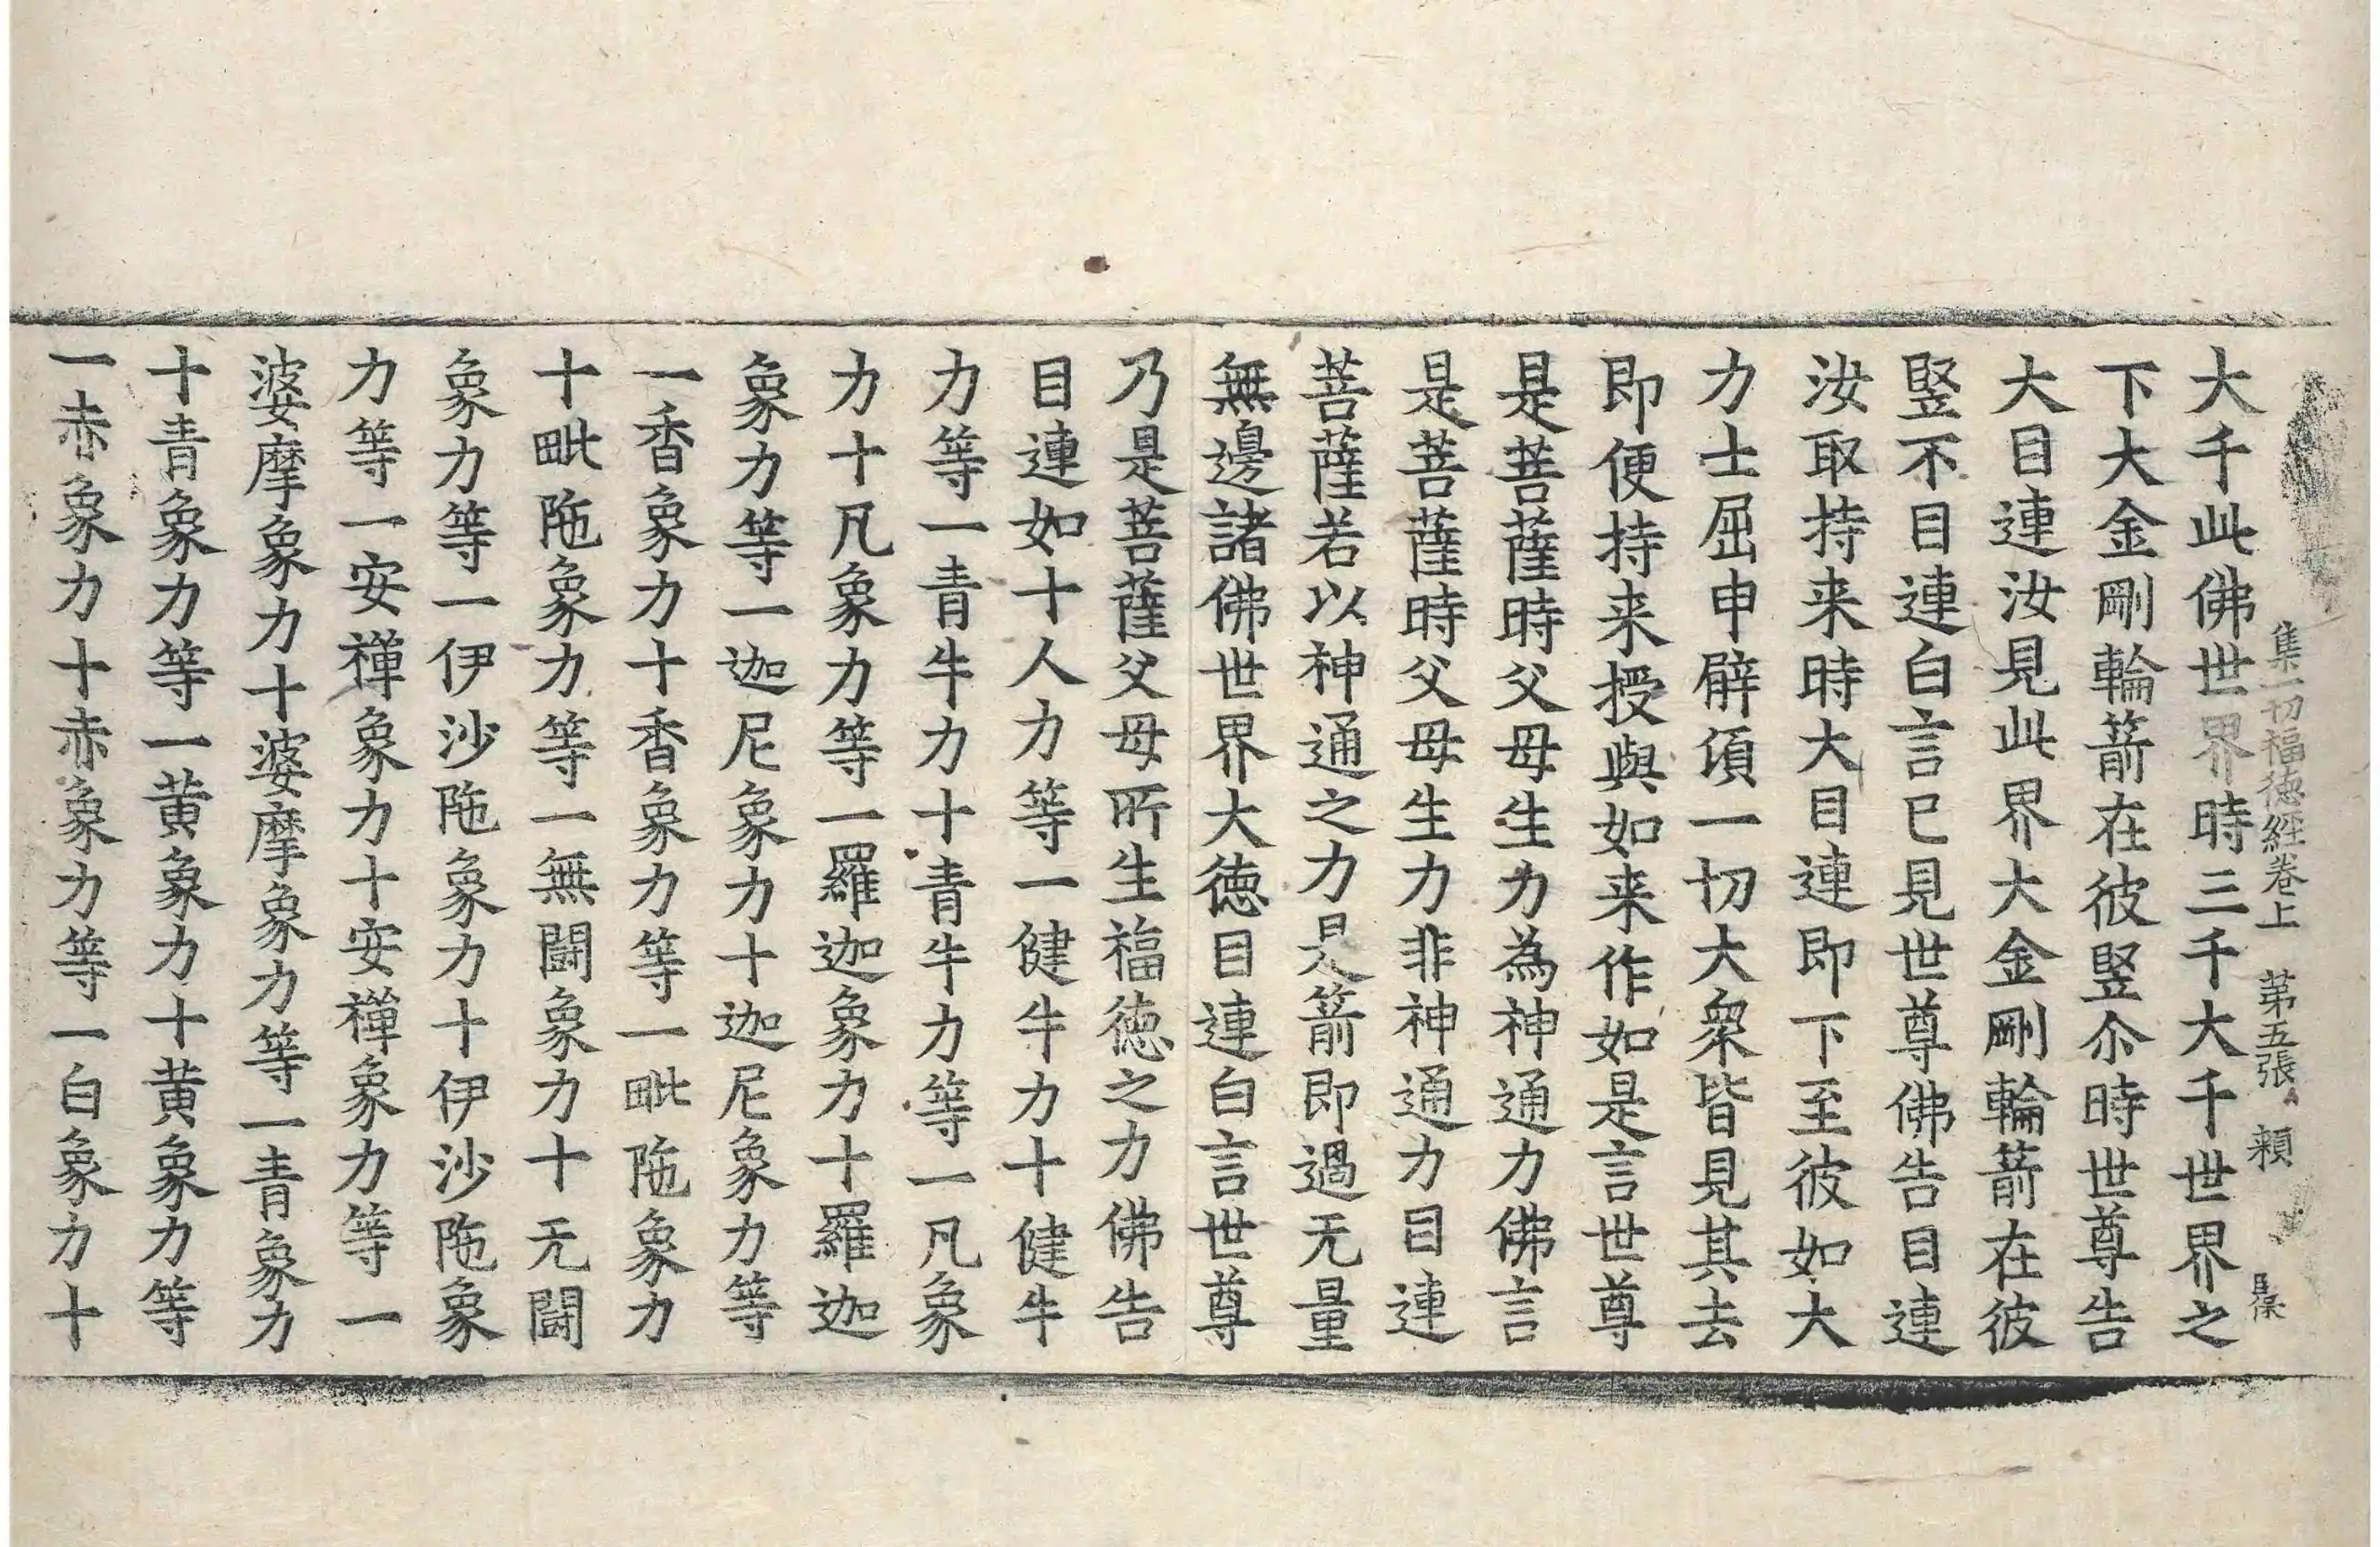 集一切福德經卷上　第五張　頼
大千此佛世界時三千大千世界之
下大金剛輪箭在彼竪尒時世尊告
大目連汝見此界大金剛輪箭在彼
竪不目連白言已見世尊佛告目連
汝取持来時大目連即下至彼如大
力士屈申臂頃一切大衆皆見其去
即便持来授與如来作如是言世尊
是菩薩時父母生力為神通力佛言
是菩薩時父母生力非神通力目連
菩薩若以神通之力是箭即過无量
無邊諸佛世界大徳目連白言世尊
乃是菩薩父母所生福徳之力佛告
目連如十人力等一健牛力十健牛
力等一青牛力十青牛力等一凡象
力十凡象力等一羅迦象力十羅迦
象力等一迦尼象力十迦尼象力等
一香象力十香象力等一毗陁象力
十毗陁象力等一無鬪象力十无鬪
象力等一伊沙陁象力十伊沙陁象
力等一安禪象力十安禪象力等一
婆摩象力十婆摩象力等一青象力
十青象力等一黄象力十黄象力等
一赤象力十赤象力等一白象力十